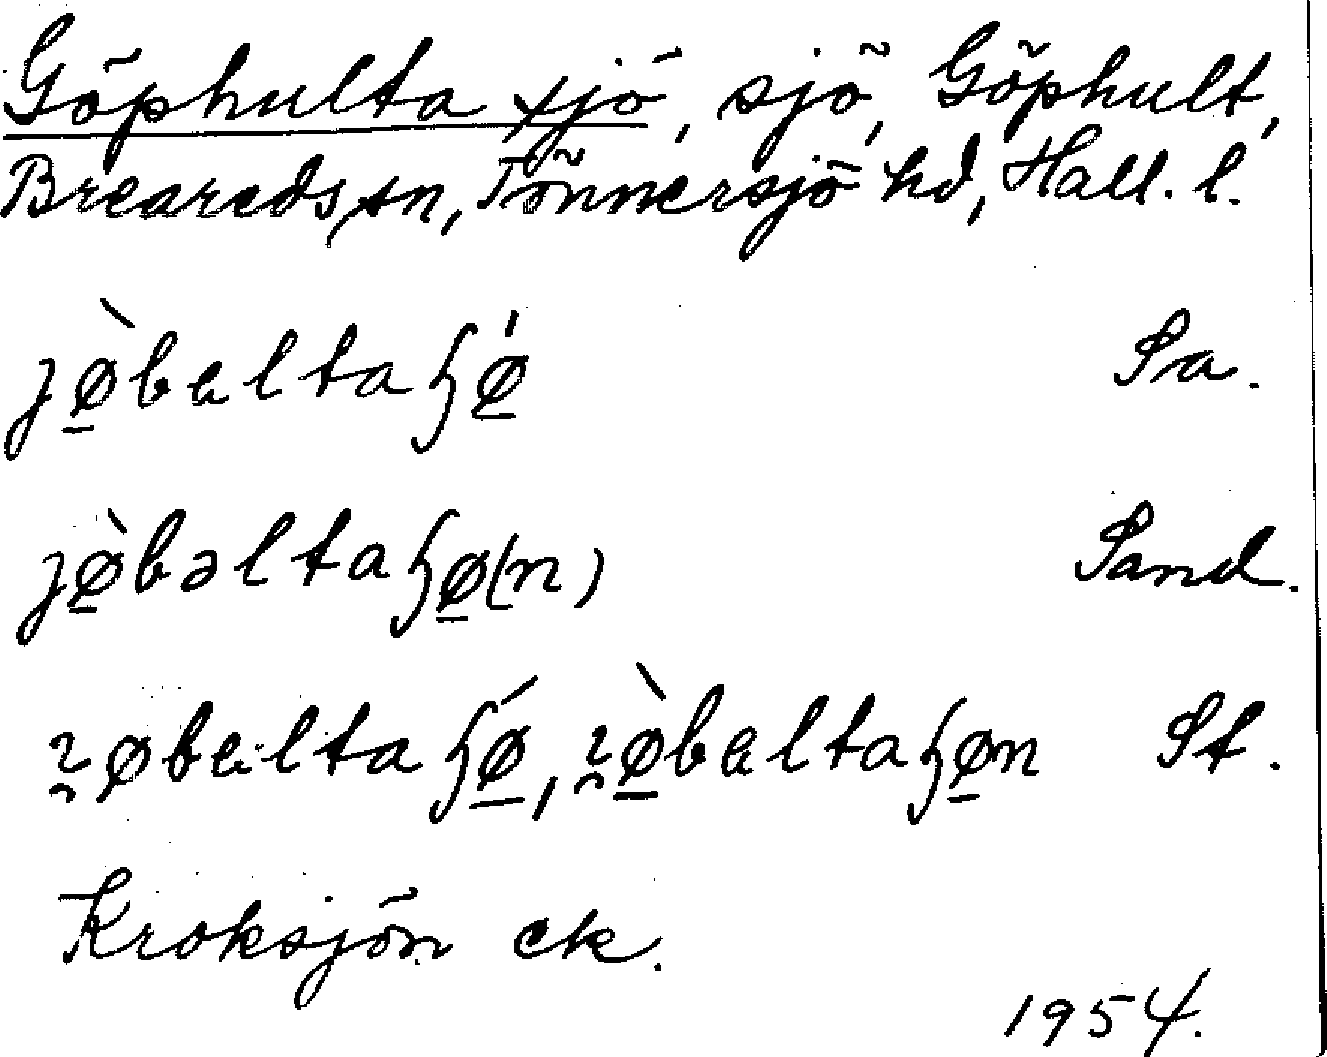 Göphulta sjö, sjö, Göphult,
Breareds sn, Tönnersjö hd, Hall. l.
jø̲̀bɐltaɧǿ̲ Sa.
jø̲̀bəltaɧø̲(n) Sand.
ɀøbɐltaɧǿ̲, ɀø̲̀bɐltaɧø̲n St.
Kroksjön ek.
1954.